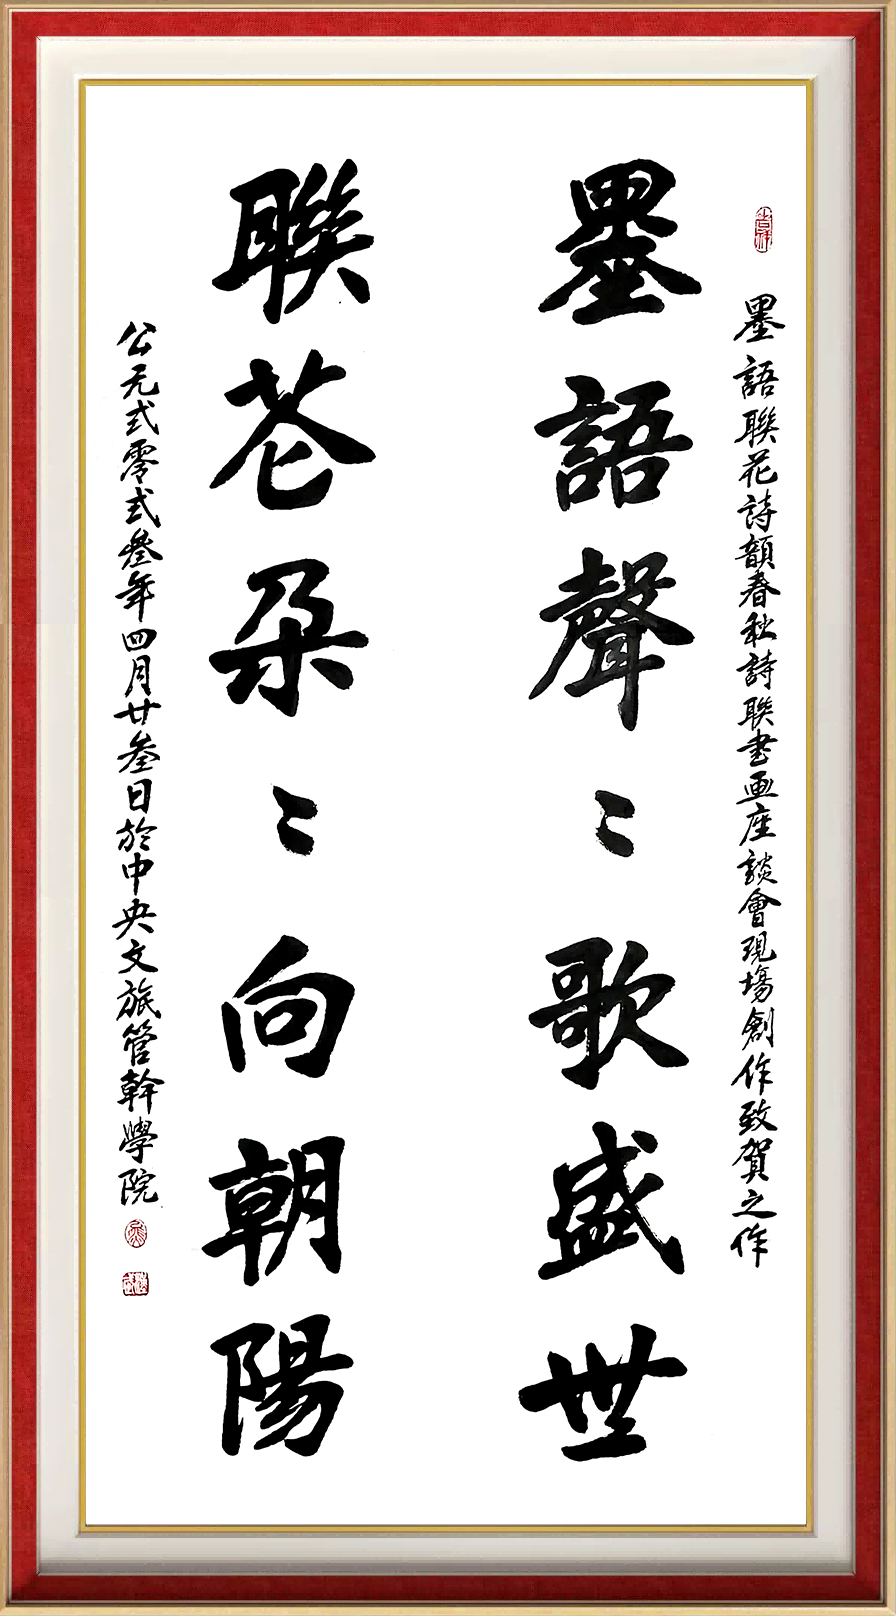 吉祥
墨語聯花詩韻春秋詩聯書画座談會現場創作致賀之作
墨語聲〻歌盛世
聯花朵〻向朝陽
公元弍零弍叁年四月廿叁日於中央文旅管幹學院